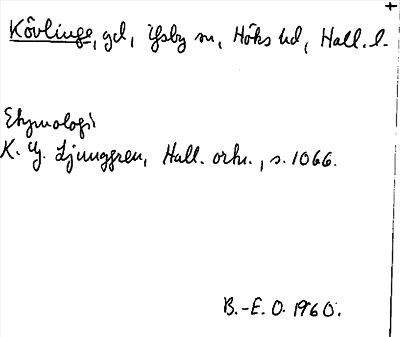 Kövlinge, gd, Ysby sn, Höks hd, Hall. l.
Etymologi
K. G. Ljunggren, Hall. ortn., s. 1066.
B.-E. O. 1960.